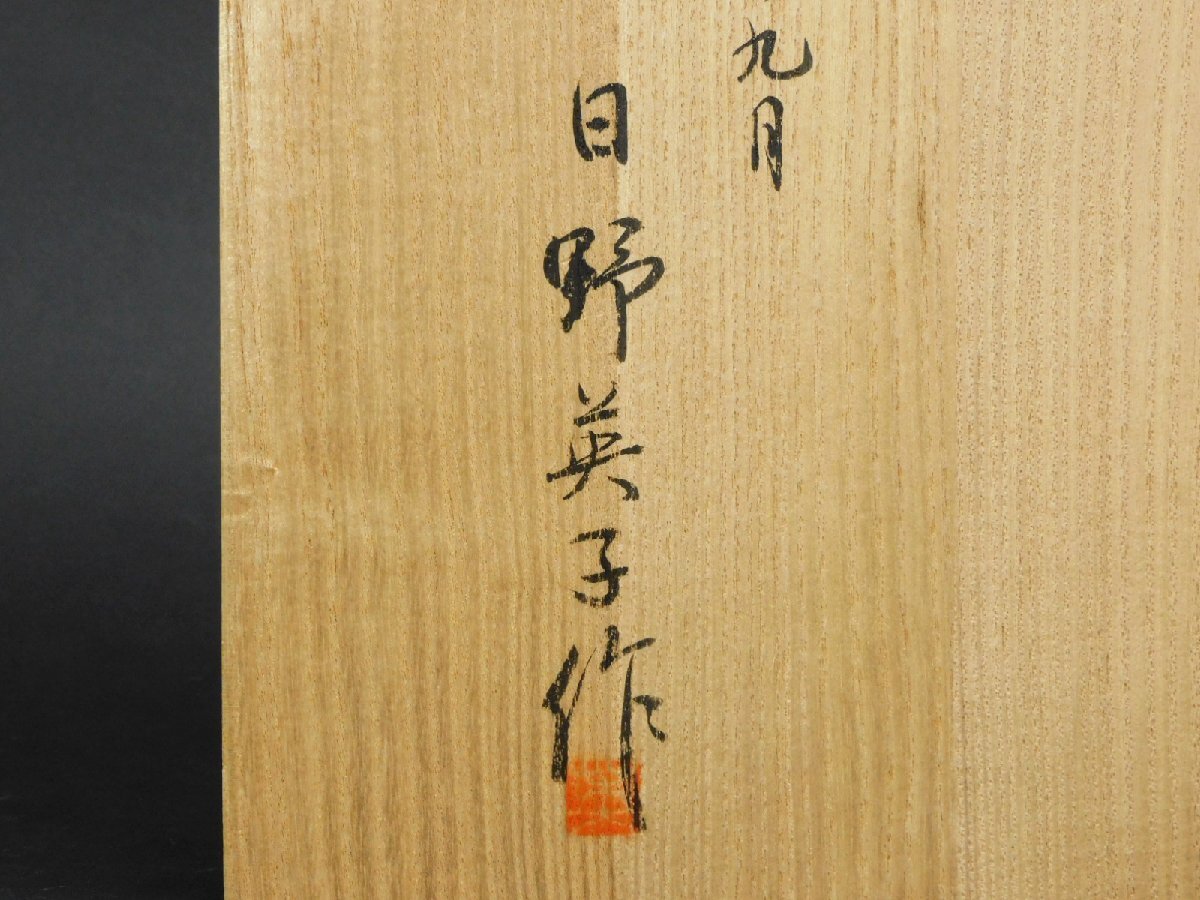 九月
日野英子作